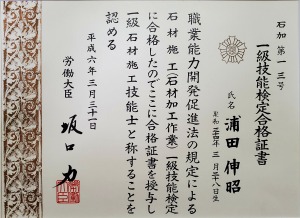 石加 第一三号
一級技能検定合格証書
氏名 浦田伸昭
昭和二四年三月二八日生
職業能力開発促進法の規定による
石材施工(石材加工作業)一級技能検定
に合格したのでここに合格証書を授与し
一級石材施工技能士と称することを
認める
平成六年三月三一日
労働大臣 坂口力